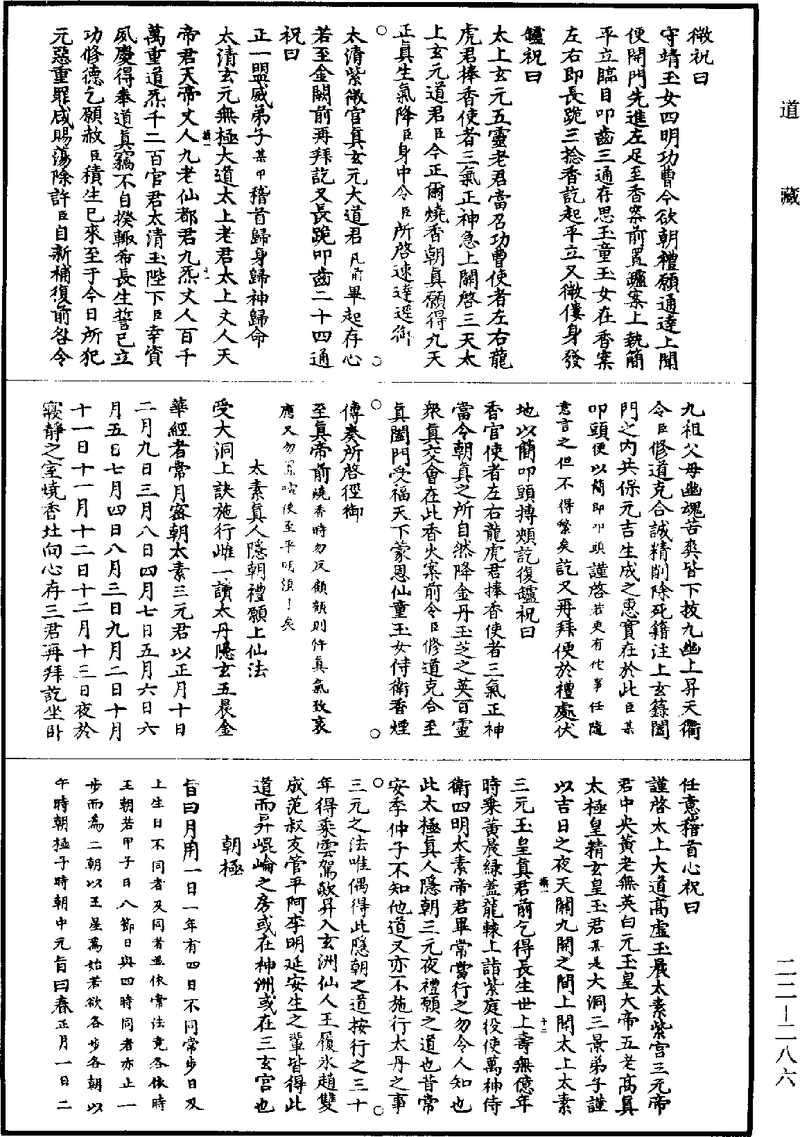 道藏
二二—二八六
微祝曰
守靖玉女四明功曹今欲朝禮願通達上聞
便開門先進左足至香案前置爐案上執簡
平立臨目叩齒三通存思玉童玉女在香案
左右即長跪三捻香訖起平立又微僂身發
鑪祝曰
太上玄元五靈老君當召功曹使者左右龍
虎君捧香使者三氣正神急上關啓三天太
上玄元道君臣今正爾燒香朝真願得九天
正真生氣降臣身中令臣所啓速達逕御
太清紫微宮真玄元大道君几前畢起存心
若至金闕前再拜訖又長跪叩齒二十四通
祝曰
正一盟威弟子某甲稽首歸身歸神歸命
太清玄元無極大道太上老君太上丈人天
帝君天帝丈人九老仙都君九炁丈人百千
萬重道炁千二百官君太清玉陛下臣幸資
夙慶得奉道真竊不自揆輙希長生誓已立
功修德乞願赦臣積生已來至于今日所犯
元惡重罪咸賜蕩除許臣自新補復前咎令
九祖父母幽魂苦爽皆下拔九幽上昇天衢
令臣修道克合誠精削除死籍注上玄籙闔
門之內共保元吉生成之惠實在於此臣某
叩頭便以簡即叩頭謹啓若更有佗事任隨
意言之但不得繁矣訖又再拜便於禮處伏
地以簡叩頭搏頰訖復鑪祝曰
香官使者左右龍虎君捧香使者三氣正神
當令朝真之所自然降金丹玉芝之英百靈
衆真交會在此香火案前令臣修道克合至
真闔門受福天下蒙恩仙童玉女侍衛香煙
傳奏所啓徑御
至真帝前燒香時勿反顧顧則忤真氣致哀
應又勿

太素真人隱朝禮願上仙法
受大洞上訣施行雌一讀太丹隱玄五晨金
華經者常月密朝太素三元君以正月十日
二月九日三月八日四月七日五月六日六
月五日七月四日八月三日九月二日十月
十一日十一月十二日十二月十三日夜於
寢靜之室燒香灶向心存三君再拜訖坐卧
任意稽首心祝曰
謹啓太上大道高虛玉晨太素紫宮三元帝
君中央黃老無英白元玉皇大帝五老高真
太極皇精玄皇玉君某是大洞三景弟子謹
以吉日之夜天關九開之間上聞太上太素
三元玉皇真君前乞得長生世上壽無億年
時乘黃晨綠盖龍轅上詣紫庭役使萬神侍
衛四明太素帝君畢常當行之勿令人知也
此太極真人隱朝三元夜禮願之道也昔常
安季仲子不知他道又亦不施行太丹之事
三元之法唯偶得此隱朝之道按行之三十
年得乘雲駕歘昇入玄洲仙人王履氷趙雙
成范叔友管平阿李明延安生之輩皆得此
道而昇崐崘之房或在神洲或在三玄宮也
朝極
旨曰月用一日一年有四日不同常步日及
上生日不同者及同者並依常法竟各依時
王朝若甲子日八節日與四時同者亦止一
步而爲二朝以王星爲始若欲各步各朝以
午時朝極子時朝中元旨曰春正月一日二